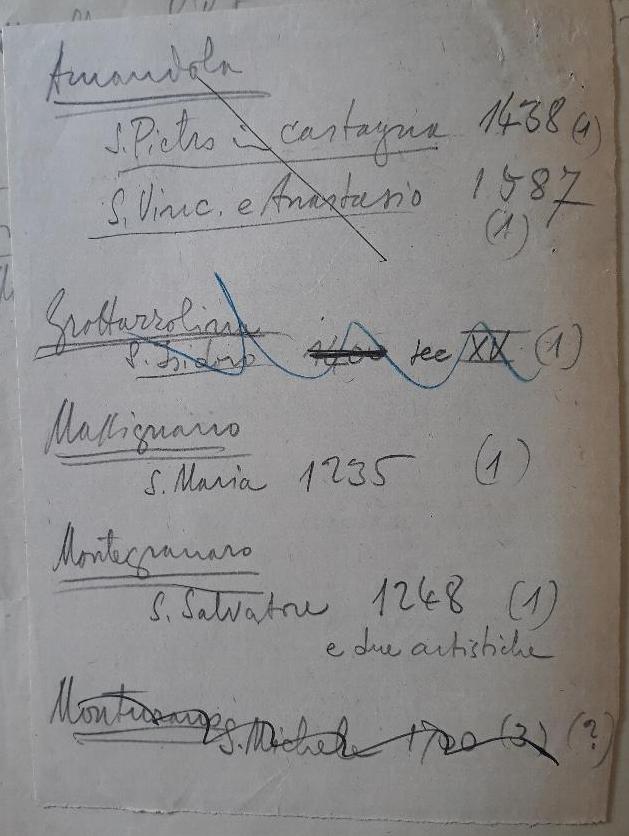 Amandola
S. Pietro in castagna 1438 (1)
S. Vinc. e Anastasio 1587
(1)
Grottazzolina
S. Isidoro 1400 sec XX (1)
Massignano
S. Maria 1235 (1)
Montegranaro
S. Salvatore 1248 (1)
e due artistiche
S. Michele 1700 (3) (?)